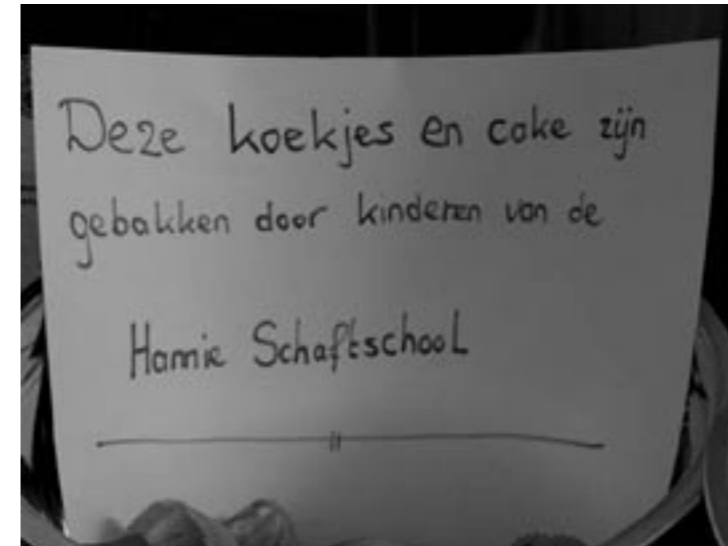 Deze koekjes en cake zijn
gebakken door kinderen van de
Hannie Schaftschool